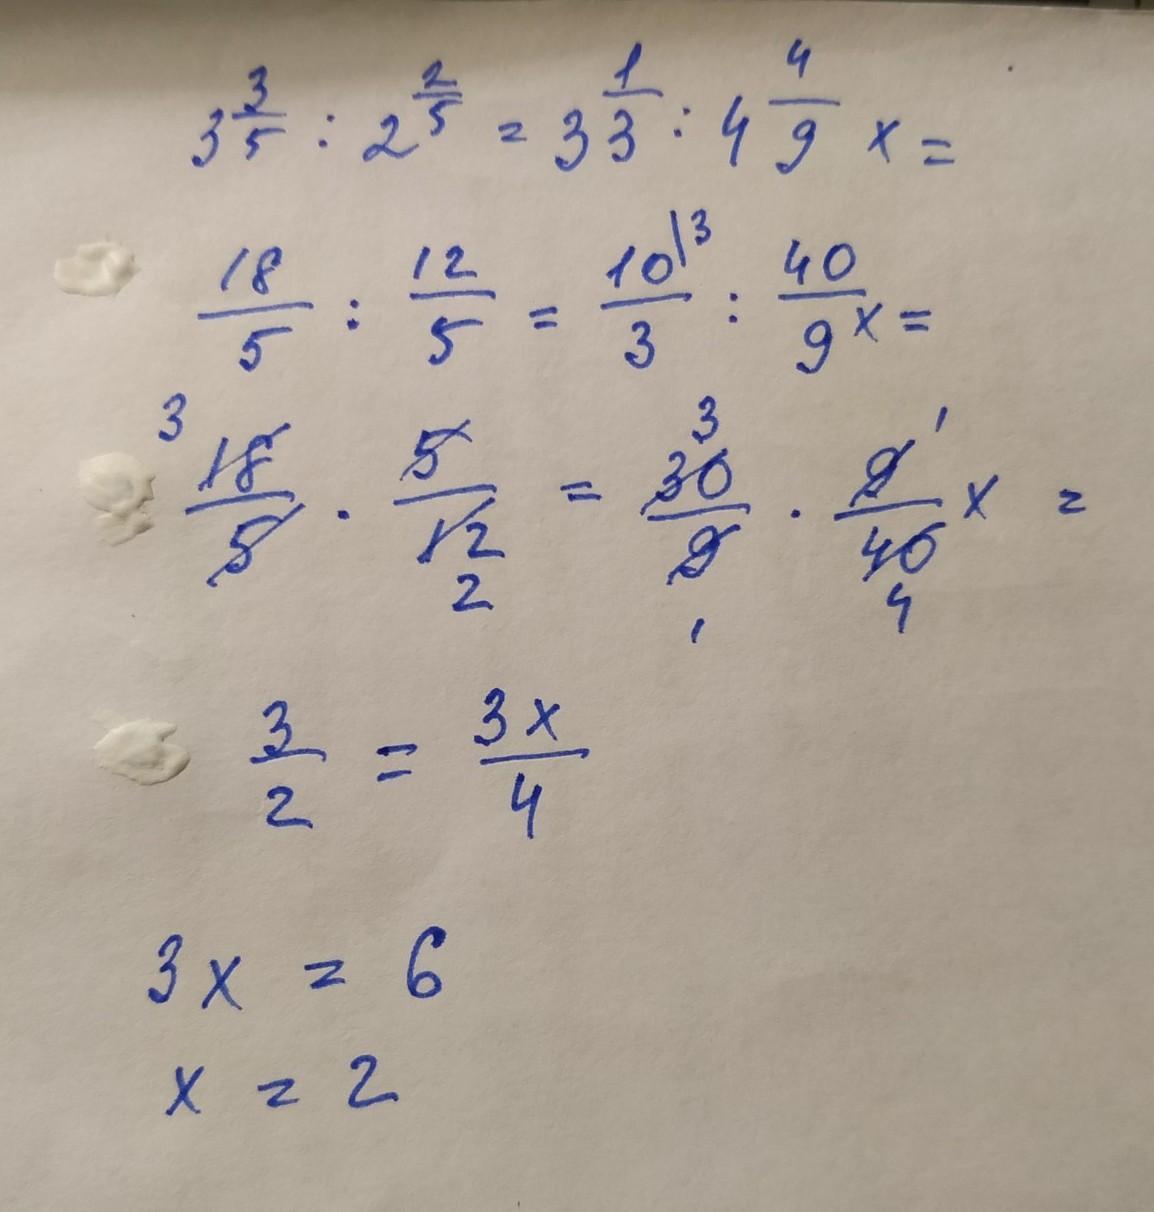 3 3/5 : 2 2/5 = 3 1/3 : 4 4/9 x =
18/5 : 12/5 = 10/3 |3 : 40/9 x =
3 18/5 · 5/12 2 = 3 30/9 1 · 9/40 1 4 x =
3/2 = 3x/4
3x = 6
x = 2